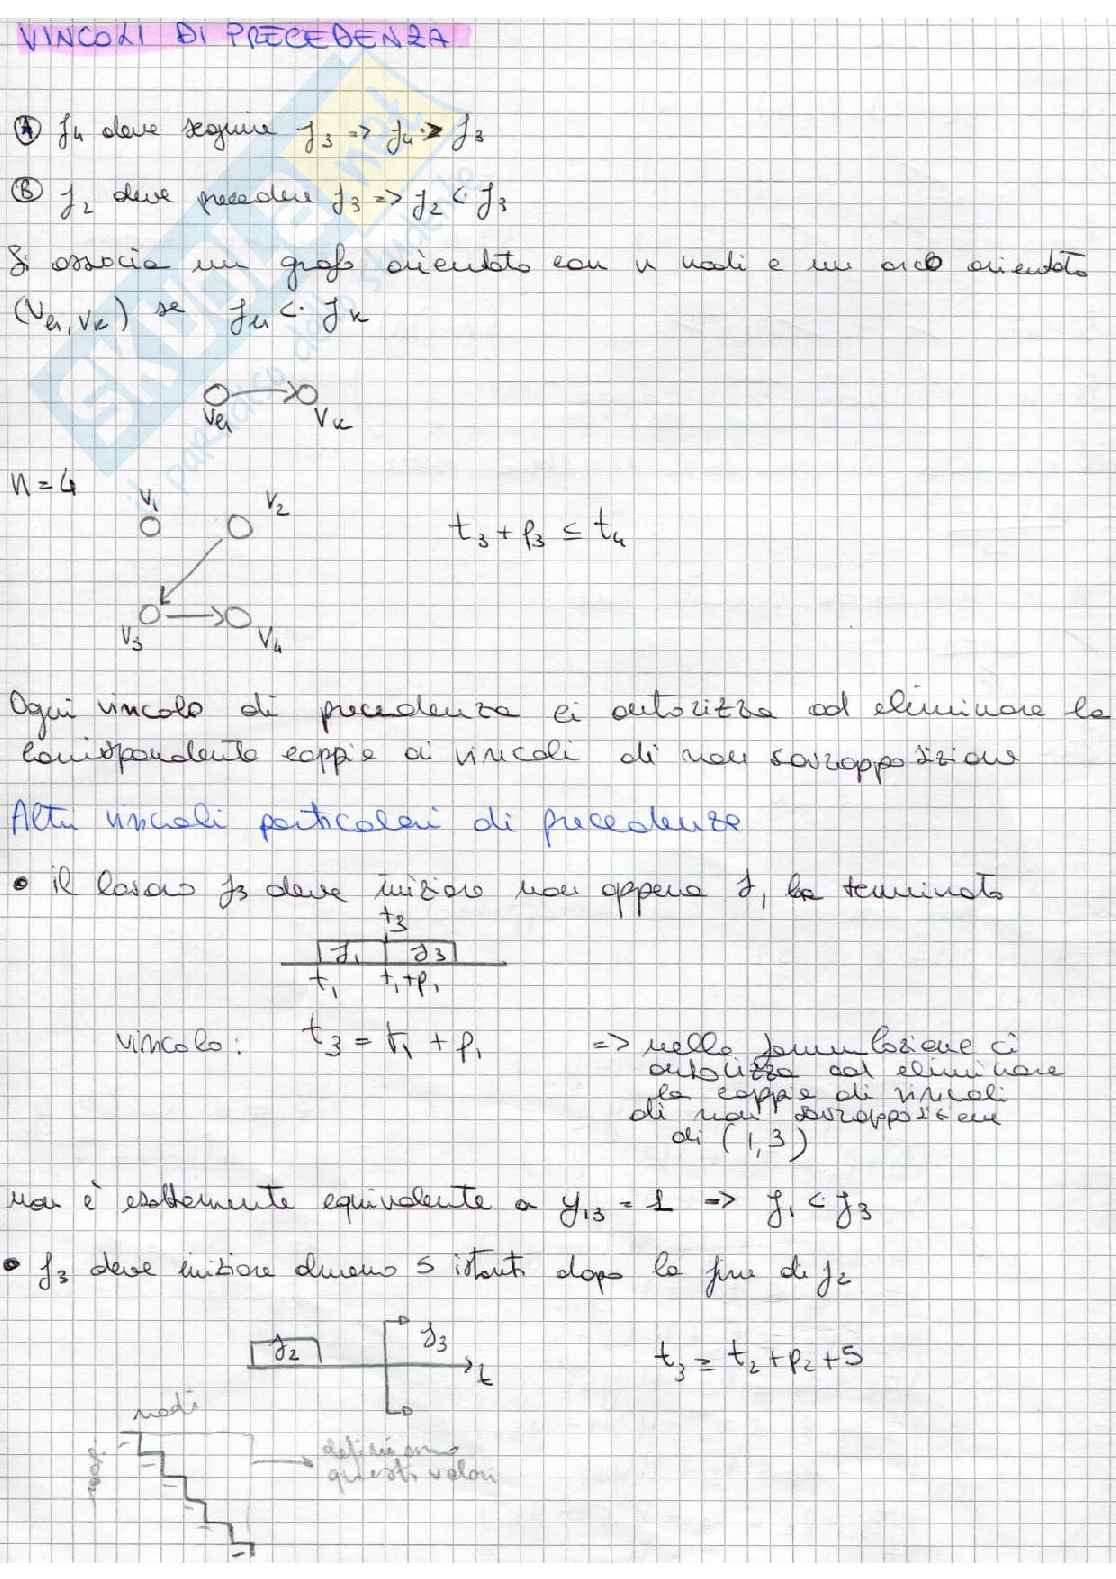 VINCOLI DI PRECEDENZA
Ⓐ J₄ deve seguire J₃ => J₄ ·> J₃
Ⓑ J₂ deve precedere J₃ => J₂ <· J₃
Si associa un grafo orientato con n nodi e un arco orientato
(Vₕ, Vₖ) se Jₕ <· Jₖ
Vₕ Vₖ
n = 4
V₁ V₂
t₃ + p₃ ≤ t₄
V₃ V₄
Ogni vincolo di precedenza ci autorizza ad eliminare la
corrispondente coppia di vincoli di non sovrapposizione
Altri vincoli particolari di precedenza
• il lavoro J₃ deve iniziare non appena J₁ ha terminato
t₃
J₁ J₃
t₁ t₁+p₁
vincolo: t₃ = t₁ + p₁ => nella formulazione ci
autorizza ad eliminare
la coppia di vincoli
di non sovrapposizione
di (1,3)
non è esattamente equivalente a y₁₃ = 1 => J₁ <· J₃
• J₃ deve iniziare almeno 5 istanti dopo la fine di J₂
J₂ J₃
t
t₃ ≥ t₂ + p₂ + 5
nodi
nodi
definiamo
questi valori
SKUOLA.net
il paradiso dello studente